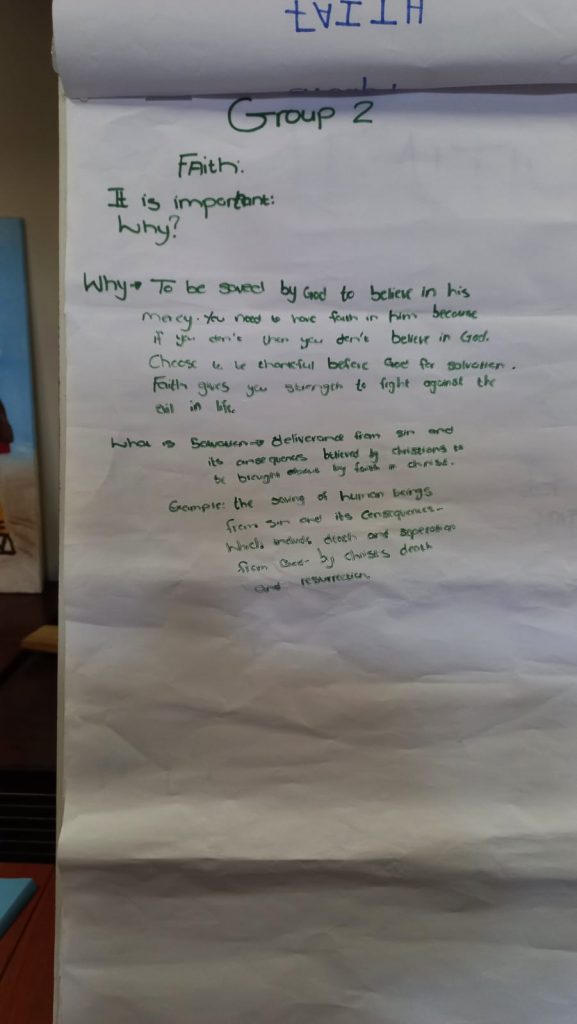 FAITH
Group 2
FAith:
It is important:
Why?
Why→ To be saved by God to believe in his
mercy. You need to have faith in him because
if you don't then you don't believe in God.
Choose to be thankful before God for salvation.
Faith gives you strength to fight against the
evil in life.
What is Salvation→ deliverance from sin and
its consequences believed by christians to
be brought about by faith in christ.
Example: the saving of human beings
from sin and its consequences-
which includes death and seperation
from God- by christ's death
and resurrection.